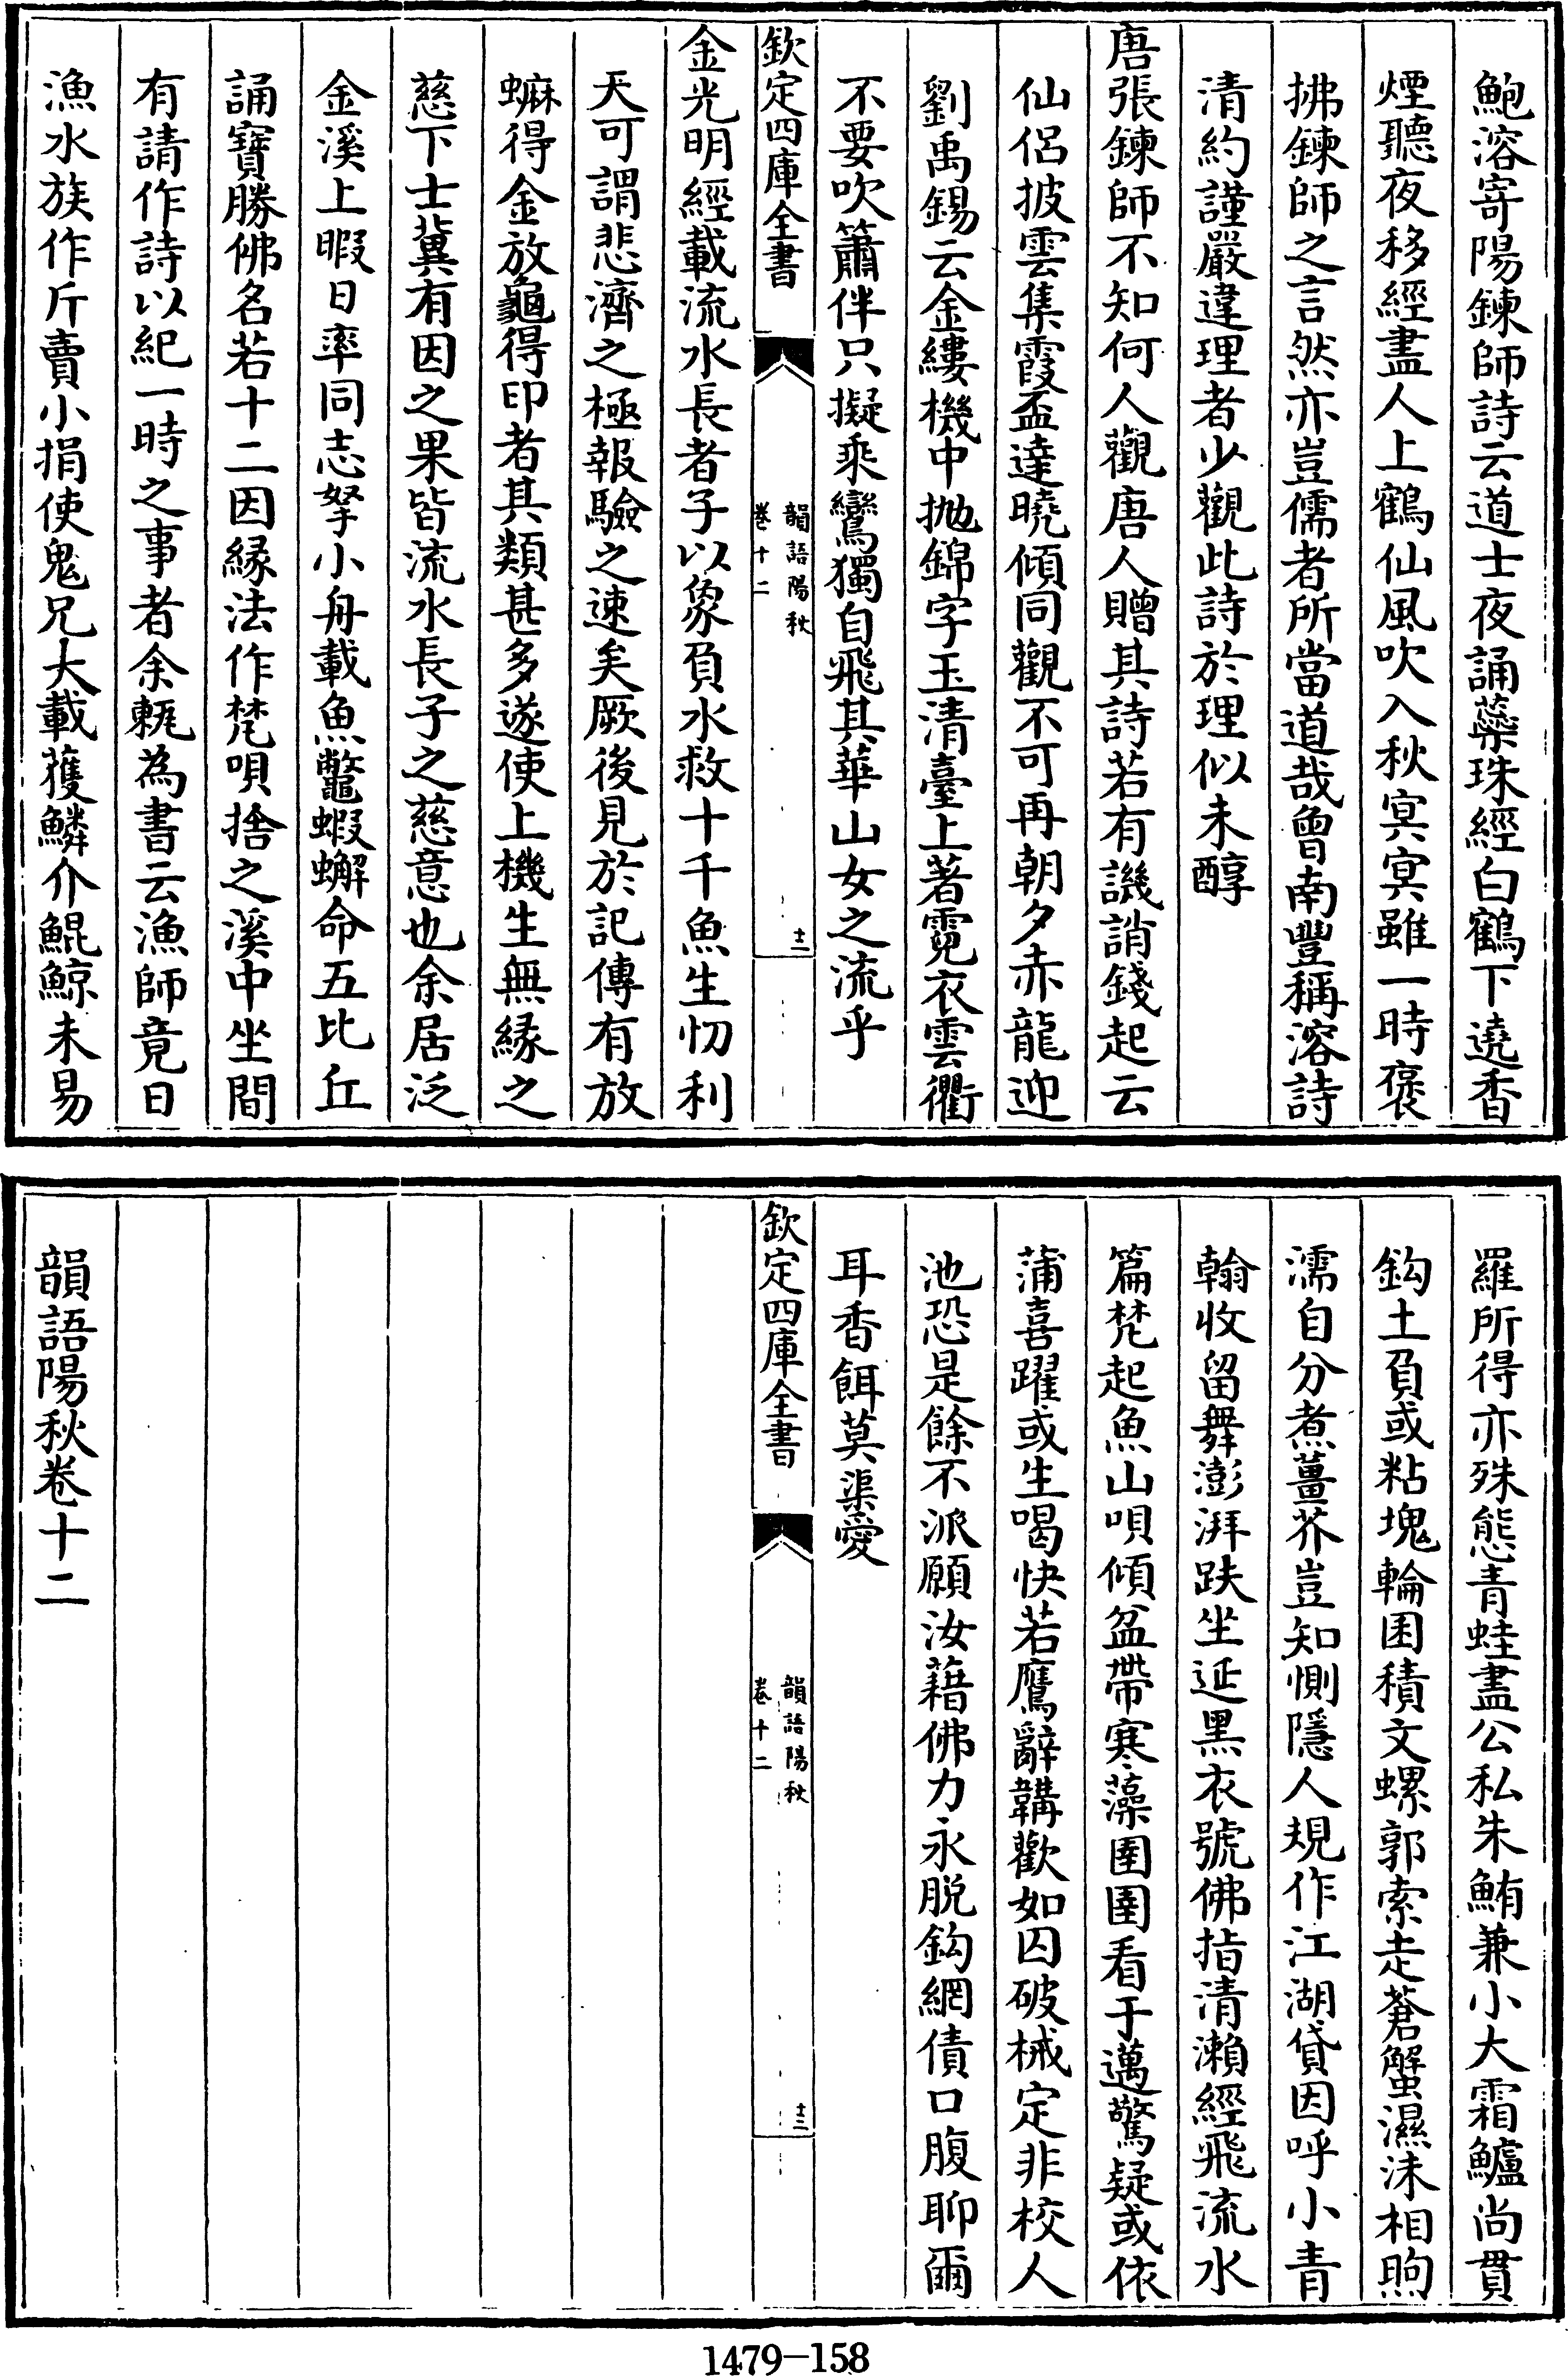 鮑溶寄陽鍊師詩云道士夜誦蘂珠經白鶴下遶香
煙聽夜移經盡人上鶴仙風吹入秋㝠㝠雖一時褒
拂鍊師之言然亦豈儒者所當道哉曾南豐稱溶詩
清約謹嚴違理者少觀此詩於理似未醇
唐張鍊師不知何人觀唐人贈其詩若有譏誚錢起云
仙侣披雲集霞盃達曉傾同觀不可再朝夕赤龍迎
劉禹錫云金縷機中抛錦字玉清臺上著霓衣雲衢
不要吹簫伴只擬乘鸞獨自飛其華山女之流乎
欽定四庫全書
韻語陽秋
卷十二
十二
金光明經載流水長者子以象負水救十千魚生忉利
天可謂悲濟之極報驗之速矣厥後見於記傳有放
䗫得金放龜得印者其類甚多遂使上機生無縁之
慈下士冀有因之果皆流水長子之慈意也余居泛
金溪上暇日率同志拏小舟載魚鼈蝦蠏命五比丘
誦寶勝佛名若十二因縁法作梵唄捨之溪中坐間
有請作詩以紀一時之事者余輒為書云漁師竟日
漁水族作斤賣小捐使鬼兄大載獲鱗介鯤鯨未易
羅所得亦殊態青蛙盡公私朱鮪兼小大霜鱸尚貫
鈎土負或粘塊輪囷積文螺郭索走蒼蟹濕沫相呴
濡自分煮薑芥豈知惻隱人規作江湖貸因呼小青
翰收留舞澎湃趺坐延黒衣號佛指清瀨經飛流水
篇梵起魚山唄傾盆帶寒藻圉圉看于邁驚疑或依
蒲喜躍或生喝快若鷹辭韝歡如囚破械定非校人
池恐是餘不派願汝藉佛力永脱鈎網債口腹聊爾
耳香餌莫渠愛
欽定四庫全書
韻語陽秋
卷十二
十三
韻語陽秋卷十二
1479-158